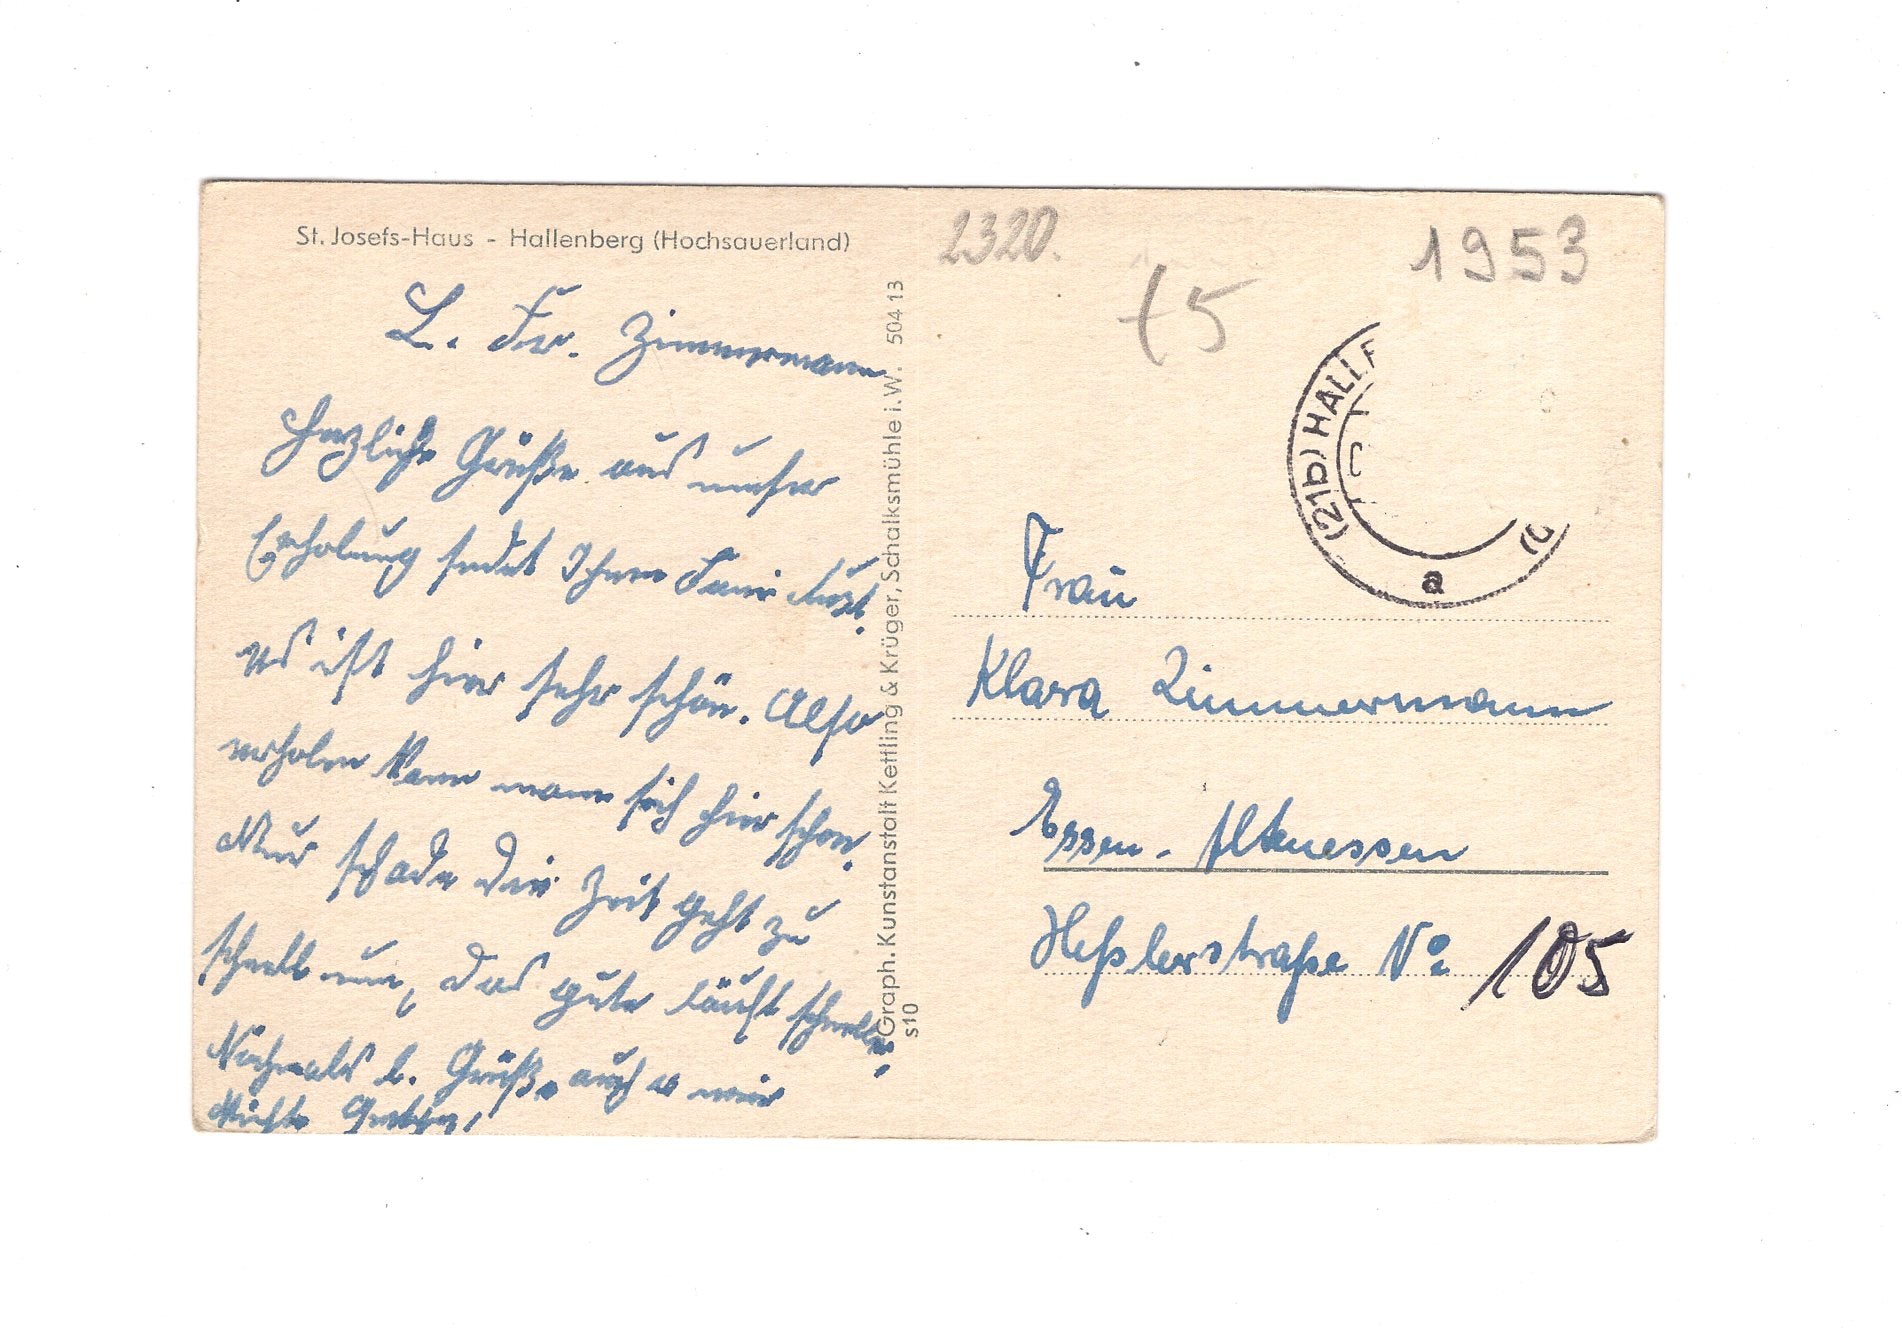 St. Josefs-Haus - Hallenberg (Hochsauerland)
L. Fr. Zimmermann
Herzliche Grüße aus unser
Erholung sendet Ihnen
es ist hier sehr schön. Also
erholen kann man sich hier schon.
Nur schade die Zeit geht zu
schnell um, das gute läuft schneller.
Nochmals h. Grüße auch v
Graph. Kunstanstalt Kettling & Krüger, Schalksmühle i.W. 504 13
s10
2320.
t5
1953
(21b) HALLE
a
Frau
Klara Zimmermann
Essen - Altenessen
Heßlerstraße No 105